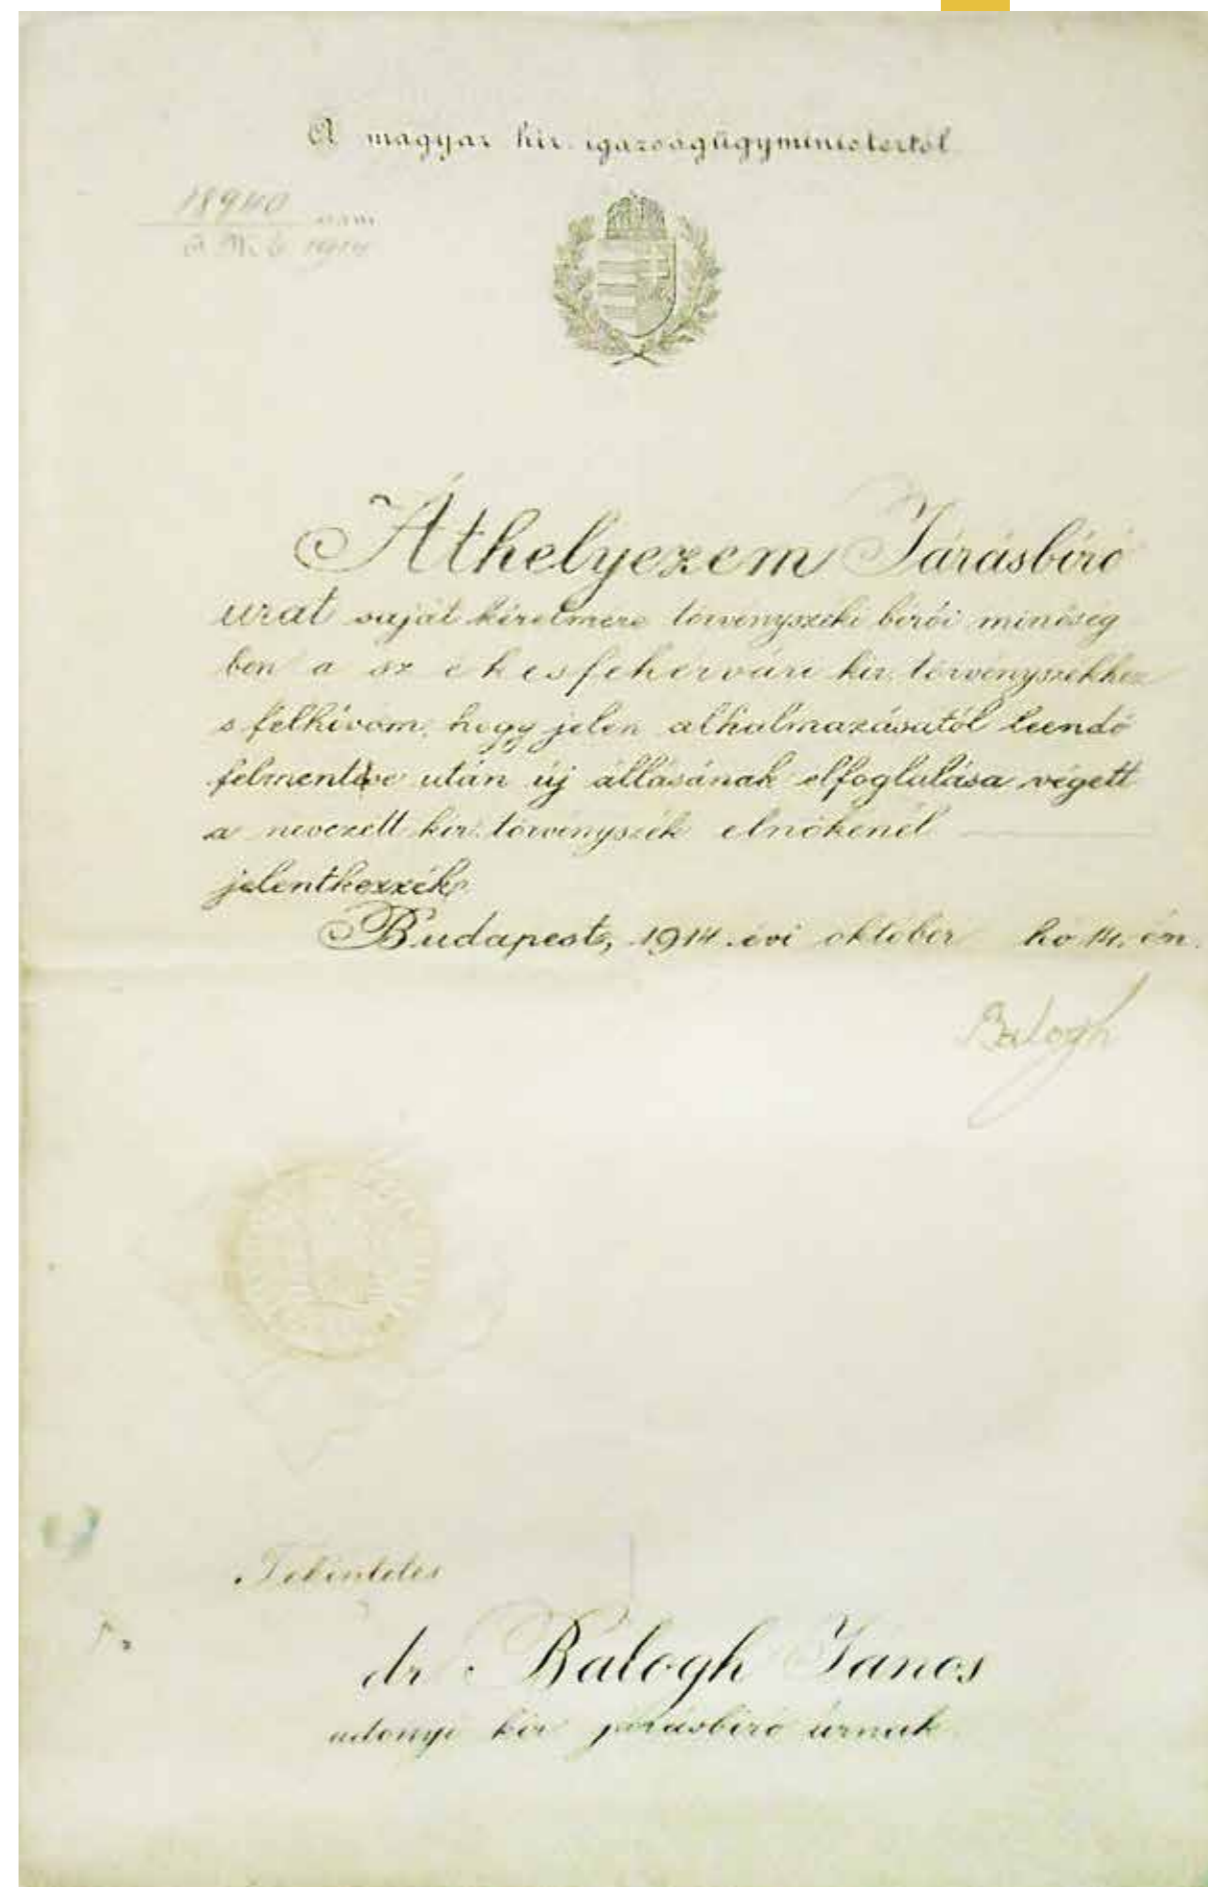 A magyar kir. igazságügyministertől
18940 szám
I. M. E. 1914
Áthelyezem Járásbíró
urat saját kérelmére törvényszéki bírói minőség
ben a székesfehérvári kir. törvényszékhez
s felhívom, hogy jelen alkalmazásától leendő
felmentése után új állásának elfoglalása végett
a nevezett kir. törvényszék elnökénél
jelentkezzék.
Budapest, 1914. évi október hó 14. én.
Balogh
Tekintetes
dr. Balogh János
adonyi kir járásbíró úrnak